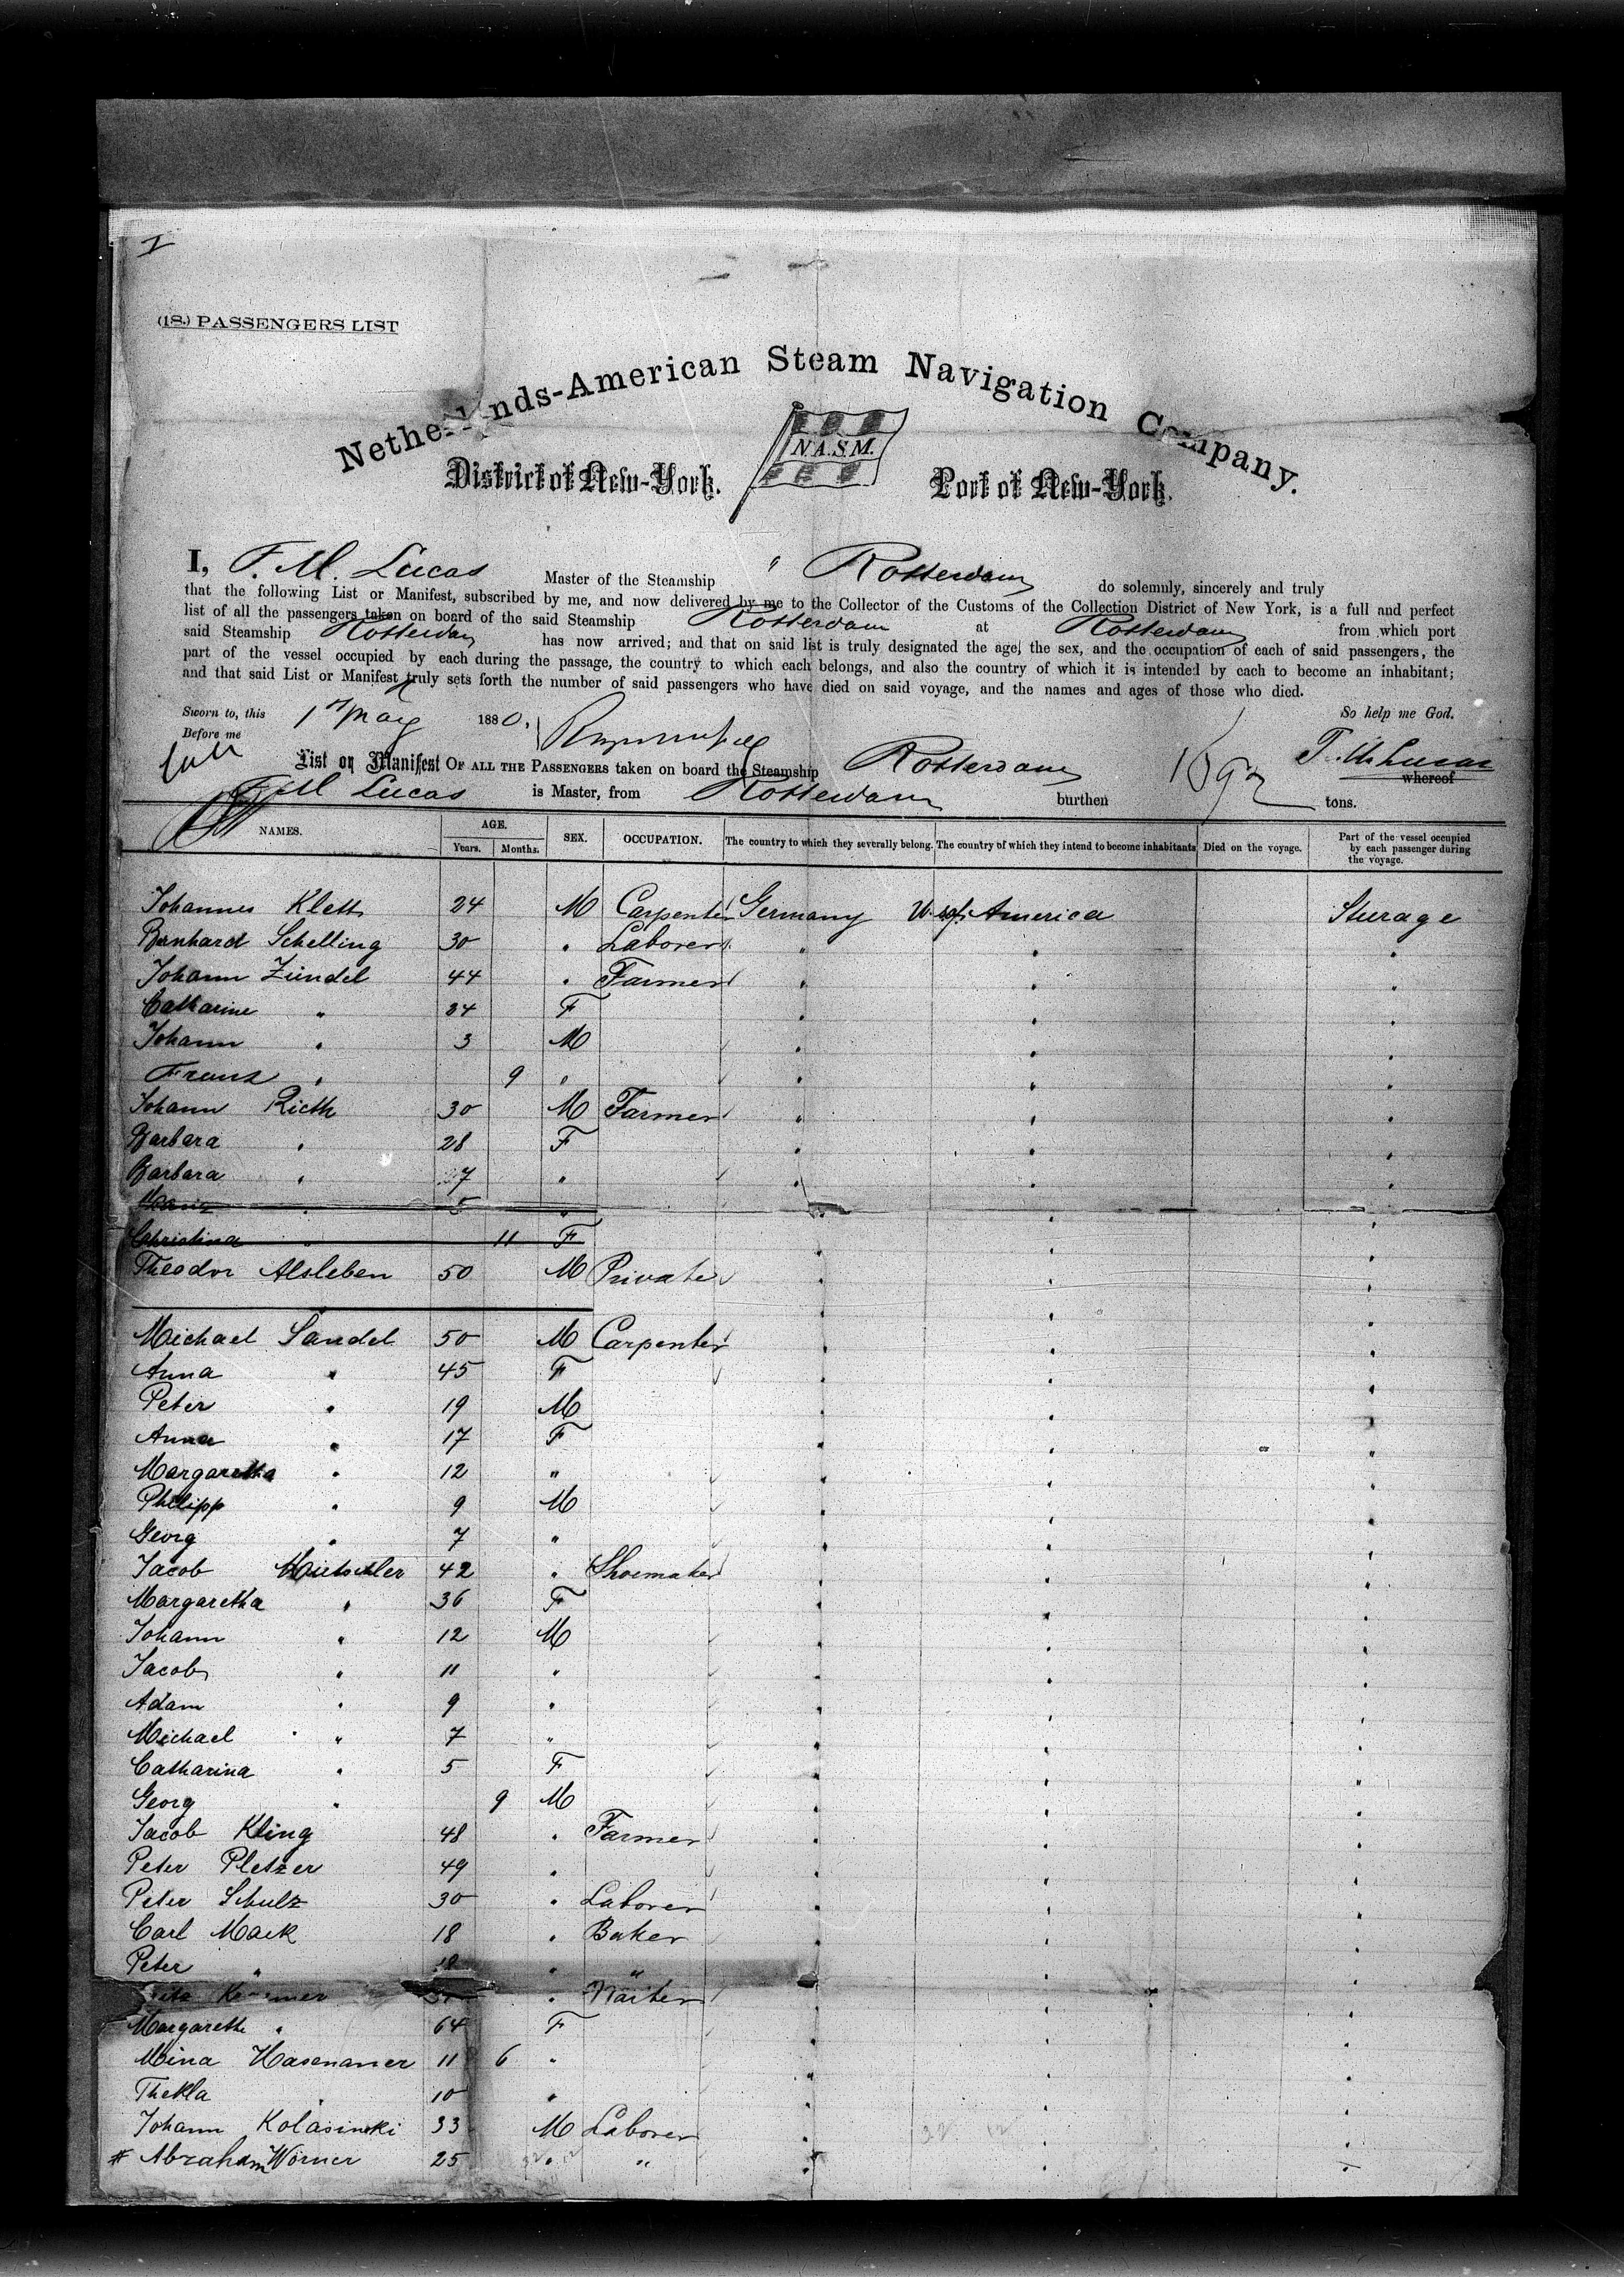 I
(18.) PASSENGERS LIST
Netherlands-American Steam Navigation Company.
N.A.S.M.
District of New-York. Port of New-York.
I, F. M. Lucas Master of the Steamship " Rotterdam do solemnly, sincerely and truly
that the following List or Manifest, subscribed by me, and now delivered by me to the Collector of the Customs of the Collection District of New York, is a full and perfect
list of all the passengers taken on board of the said Steamship Rotterdam at Rotterdam from which port
said Steamship Rotterdam has now arrived; and that on said list is truly designated the age, the sex, and the occupation of each of said passengers, the
part of the vessel occupied by each during the passage, the country to which each belongs, and also the country of which it is intended by each to become an inhabitant;
and that said List or Manifest truly sets forth the number of said passengers who have died on said voyage, and the names and ages of those who died.
Sworn to, this 1st May 1880, So help me God.
Before me
List or Manifest OF ALL THE PASSENGERS taken on board the Steamship Rotterdam 1692 F. M. Lucas whereof
F M Lucas is Master, from Rotterdam burthen tons.
NAMES. AGE. Years. Months. SEX. OCCUPATION. The country to which they severally belong. The country of which they intend to become inhabitants Died on the voyage. Part of the vessel occupied by each passenger during the voyage.
Johannes Klett 24 M Carpenter Germany U. S. of America Sturage
Bernhard Schelling 30 " Laborer " " "
Johann Zündel 44 " Farmer " " "
Catharine " 34 F " " "
Johann " 3 M " " "
Franz " 9 " " " "
Johann Rieth 30 M Farmer " " "
Barbara " 28 F " " "
Barbara " 7 " " " "
" 5 "
Christina " 11 F " " "
Theodor Alsleben 50 M Private " " "
Michael Sandel 50 M Carpenter " " "
Anna " 45 F " " "
Peter " 19 M " " "
Anna " 17 F " " "
Margaretha " 12 " " " "
Philipp " 9 M " " "
Georg " 7 " " " "
Jacob 42 " Shoemaker " " "
Margaretha " 36 F " " "
Johann " 12 M " " "
Jacob " 11 " " " "
Adam " 9 " " " "
Michael " 7 " " " "
Catharina " 5 F " " "
Georg " 9 M " " "
Jacob Kling 48 " Farmer " " "
Peter Pletzer 49 " " " "
Peter Schulz 30 " Laborer " " "
Carl Mack 18 " Baker " " "
Peter " 18 " " " " "
" " " "
Margareth " 64 F " " "
Mina Hasenauer 11 6 " " " "
Thekla " 10 " " " "
Johann Kolasinski 33 M Laborer " " "
# Abraham Wörner 25 " " " " "